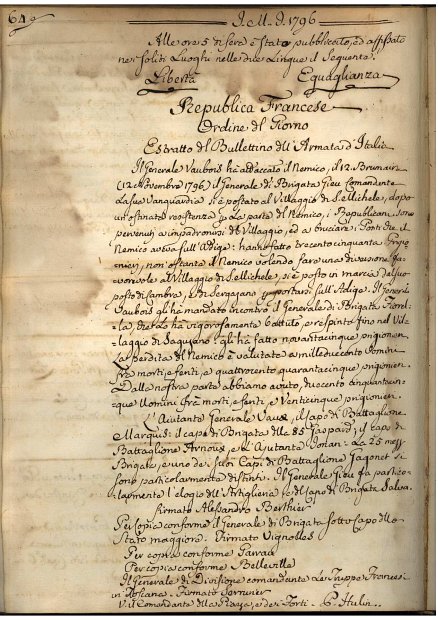 640
A. M. D. 1796
Alle ore 5 di sera è stato pubblicato, ed affissato
ne soliti Luoghi nelle due Lingue il Seguente.
Libertà Eguaglianza
Republica Francese
Ordine del Giorno
Estratto del Bullettino dell'Armata d'Italia
Il Generale Vaubois ha attaccato il Nemico, il 12. Brumaire
(12 Novembre 1796) il Generale di Brigata Fieu Comandante
La sua Vanguardia si è postato al Villaggio di S. Michele, dopo
un'ostinata resistenza p. La parte del Nemico, i Republicani, sono
pervenuti a impadronirsi del Villaggio, ed a bruciare i Ponti che il
Nemico aveva sull'Adige: hanno fatto trecento cinquanta Prigio-
nieri, non'ostante il Nemico volendo fare una diversione fa-
vorevole al Villaggio di S. Michele, si è posto in marcia dal suo
posto di Cambra, e di Segonzano p. portarsi sull'Adige. Il General
Vaubois gli ha mandato incontro il Generale di Brigata Fiorel-
la, che lo ha vigorosamente battuto, e respinto fino nel Vil-
laggio di gli ha fatto novantacinque prigionieri
La perdita del Nemico è valutata a mille duecento Uomini
frà morti, e feriti, e quattrocento quarantacinque prigionieri.
Dalla nostra parte abbiamo avuto, duecento cinquantacin-
que Uomini frà morti, e feriti, e Venticinque prigionieri.
L'Aiutante Generale Vaux, il Capo di Battaglione
Marquis: il capo di Brigata della 85 Gaspard; il Capo di
Battaglione Arnous, e l'Ajutante La 25 mezz
Brigate, e uno de' suoi Capi di Battaglione Gagonet si
sono particolarmente distinti. Il Generale Fieu fa partico-
larmente l'elogio dell'Artiglieria e del Capo di Brigata Salva.
Firmato Alessandro Berthier
Per copia conforme il Generale di Brigata Sotto Capo dello
Stato maggiore. Firmato Vignolles
Per copia conforme
Per copia conforme Belleville
Il Generale di Divisione comandante Le Truppe Francesi
in Toscana. Firmato Serrurier
V. il Comandante della Piazza, e de' Forti. P. Hulin